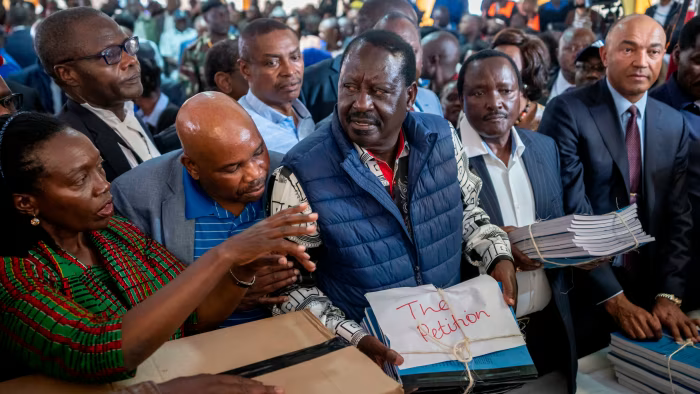 The
Petition